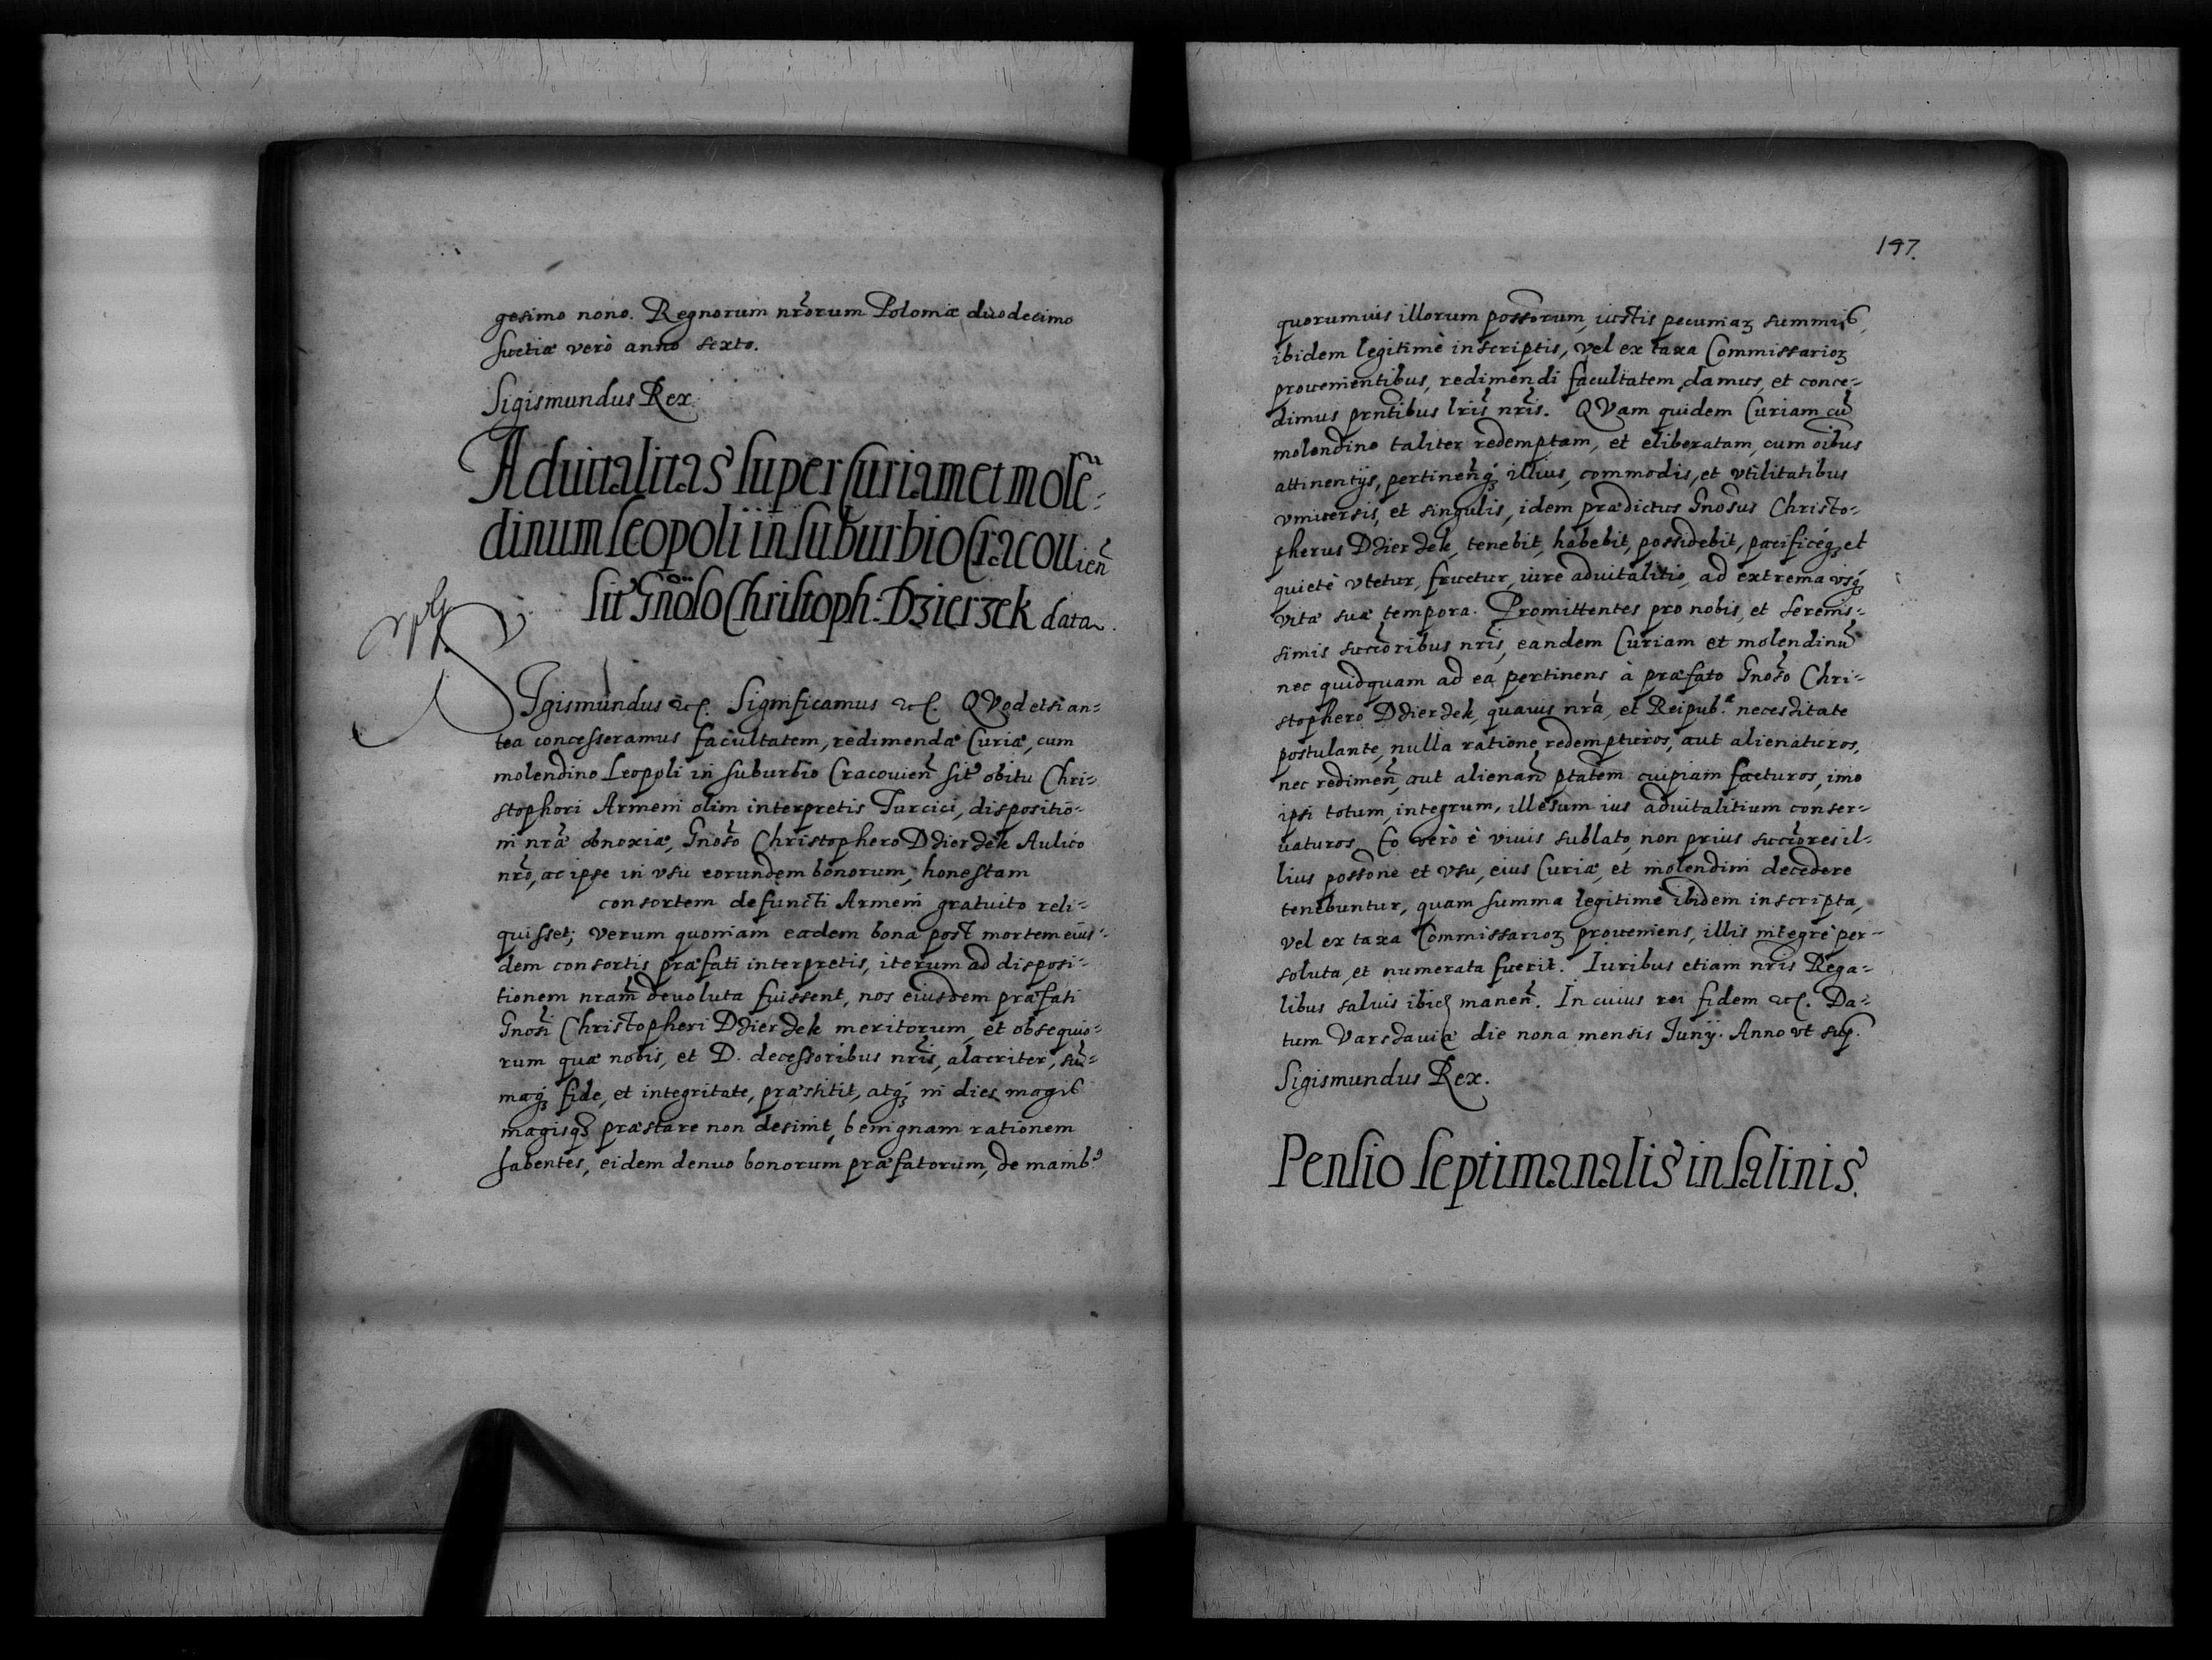 gesimo nono. Regnorum nr̃orum Poloniæ duodecimo
Suetiæ verò anno sexto.
Sigismundus Rex.
Aduitalitas super Curiam et molẽ=
dinum Leopoli in suburbio Cracouień
sit' Gñoso Christoph: Dzierzek data.
SIgismundus etc. Significamus etc. QVod etsi an=
tea concesseramus facultatem, redimendæ Curiæ, cum
molendino Leopoli in suburbio Cracouień sit' obitu Chri=
stophori Armeni olim interpretis Turcici, dispositio=
ni nr̃æ obnoxiæ, Gnoso Christophero Dzierzek Aulico
nr̃o, ac ipse in vsu eorundem bonorum, honestam
consortem defuncti Armeni gratuito reli=
quisset; verum quoniam eadem bona post mortem eius=
dem consortis præfati interpretis, iterum ad disposi=
tionem nram̃ deuoluta fuissent, nos eiusdem præfati
Gnosi Christopheri Dzierzek meritorum, et obsequio=
rum quæ nobis, et D. decessoribus nr̃is, alacriter, sũ=
maq₃ fide, et integritate, præstitit, atq₃ in dies magis
magisq₃ præstare non desinit, benignam rationem
habentes, eidem denuo bonorum præfatorum, de manib⁹
197.
quorumuis illorum possorum, iustis pecuniaꝝ summis,
ibidem legitimè inscriptis, vel ex taxa Commissarioꝝ
prouenientibus, redimendi facultatem damus, et conce=
dimus prntibus lris nr̃is. QVam quidem Curiam cũ
molendino taliter redemptam, et eliberatam, cum oĩbus
attinentijs, pertineñq₃ illius, commodis, et vtilitatibus
vniuersis, et singulis, idem prædictus Gnosus Christo=
pherus Dzierzek, tenebit, habebit, possidebit, pacificéq₃ et
quietè vtetur, fruetur, iure aduitalitio, ad extrema vsq₃
vitæ suæ tempora. Promittentes pro nobis, et Serenis=
simis succ̃oribus nr̃is, eandem Curiam et molendinũ
nec quidquam ad ea pertinens à præfato Gnoso Chri=
stophero Dzierzek, quauis nr̃a, et Reipub.æ necessitate
postulante, nulla ratione redempturos, aut alienaturos,
nec redimeñ, aut alienañ ptatem cuipiam facturos, imo
ipsi totum, integrum, illesum ius aduitalitium conser=
uaturos. Eo verò è viuis sublato, non prius succ̃ores il=
lius possone et vsu, eius Curiæ, et molendini decedere
tenebuntur, quam summa legitimè ibidem inscripta,
vel ex taxa Commissarioꝝ proueniens, illis integrè per=
soluta, et numerata fuerit. Iuribus etiam nr̃is Rega=
libus saluis ibid manen̄. In cuius rei fidem etc. Da=
tum Varsauiæ die nona mensis Junij. Anno vt sup.
Sigismundus Rex.
Pensio septimanalis in salinis.